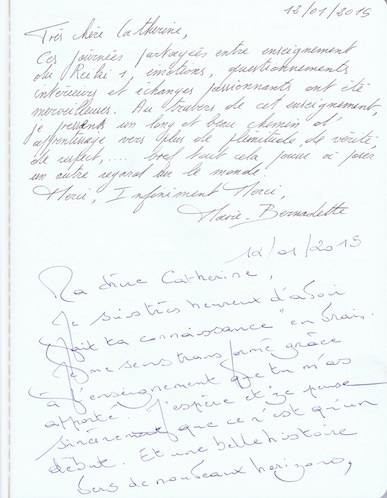 12/01/2015
Très chère Catherine,
Ces journées partagées entre enseignement
du Reiki 1, émotions, questionnements
intérieurs et échanges passionnants ont été
merveilleuses. Au travers de cet enseignement,
je pressens un long et beau chemin d'
apprentissage vers plus de plénitude, de vérité,
de respect, ... bref tout cela pour
un autre regard sur le monde.
Merci, Infiniment Merci,
Marie-Bernadette
12/01/2015
Ma chère Catherine,
Je suis très heureux d'avoir
"fait ta connaissance" en vrai.
Je me sens transformé grâce
à l'enseignement que tu m'as
apporté. J'espère et je pense
sincèrement que ce n'est qu'un
début. Et une belle histoire
vers de nouveaux horizons,